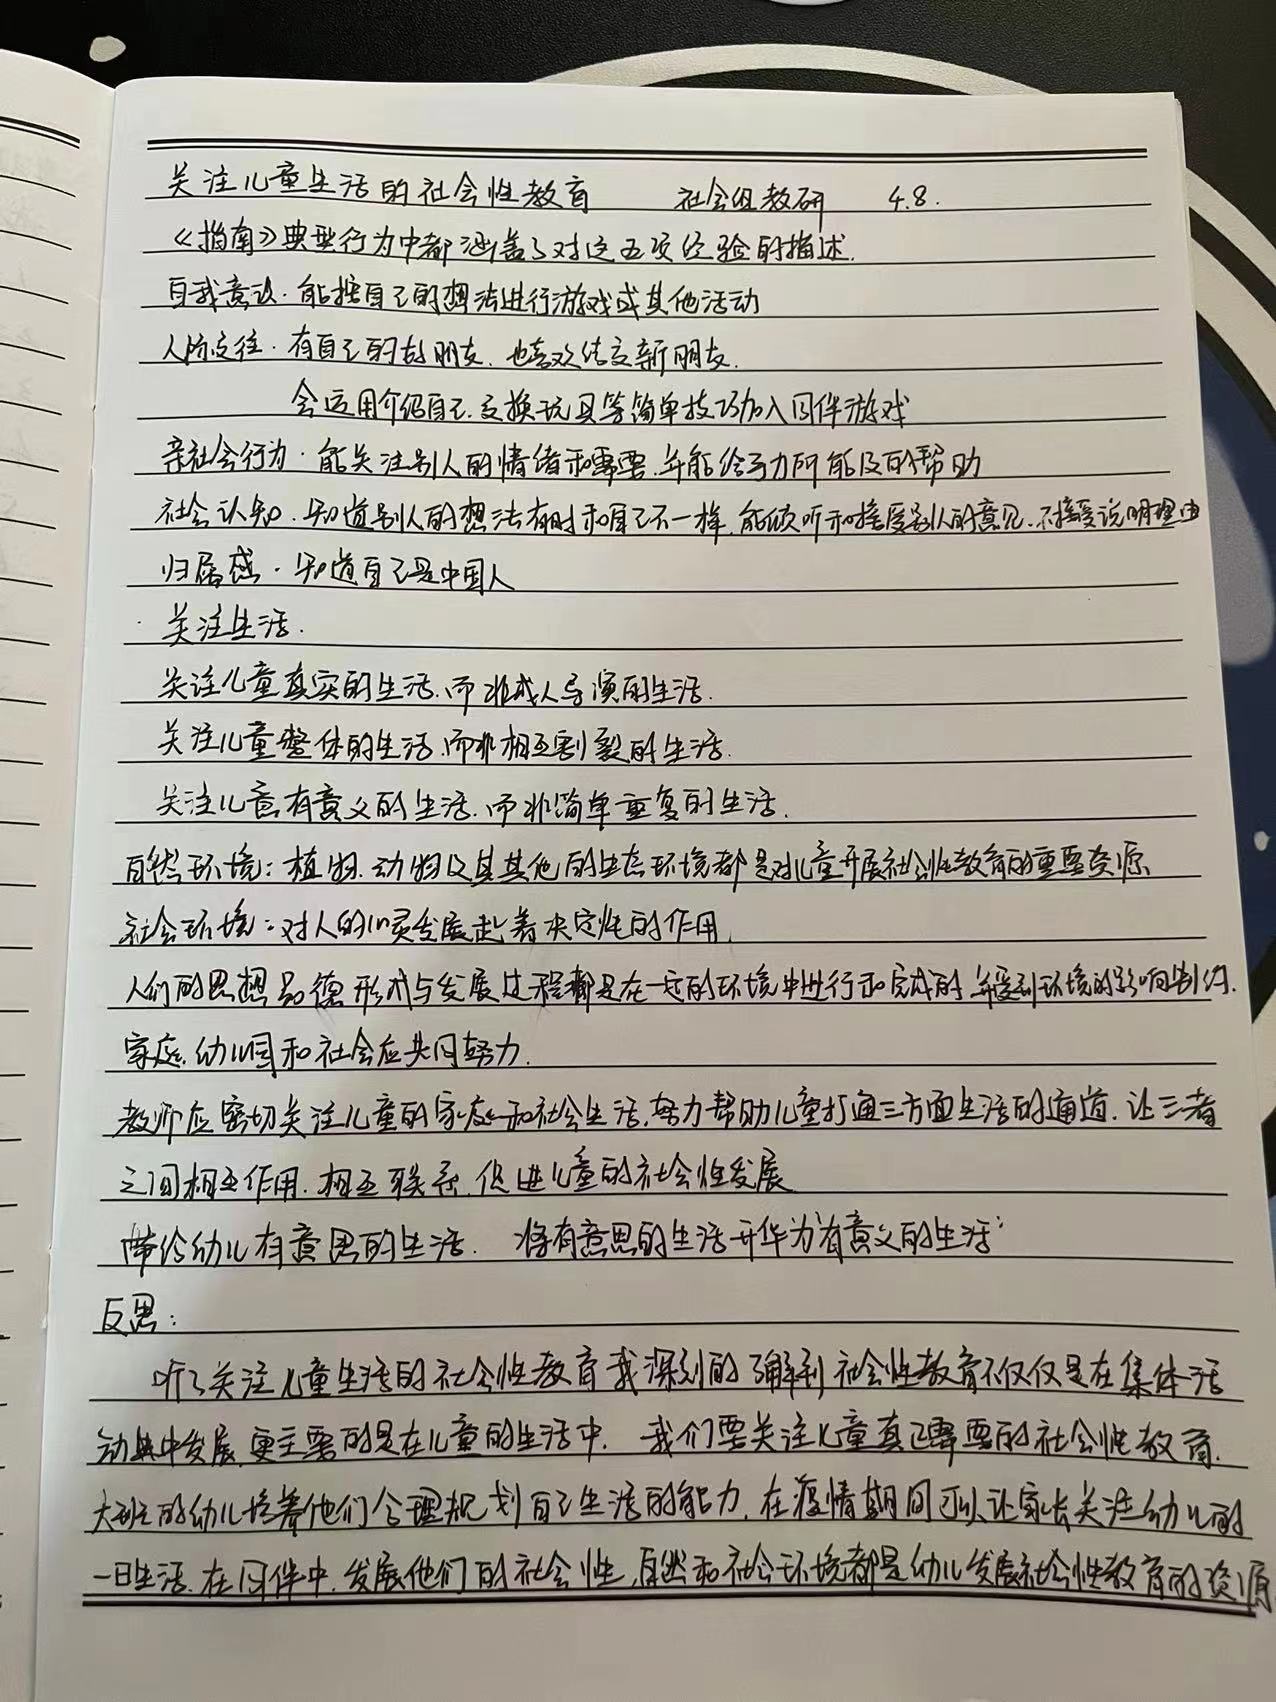 关注儿童生活的社会性教育 社会组教研 4.8.
《指南》典型行为中都涵盖了对这五项经验的描述.
自我意识·能按自己的想法进行游戏或其他活动
人际交往·有自己的好朋友、也喜欢结交新朋友.
会运用介绍自己、交换玩具等简单技巧加入同伴游戏
亲社会行为·能关注别人的情绪和需要、并能给予力所能及的帮助
社会认知、知道别人的想法有时和自己不一样、能倾听和接受别人的意见、不接受说明理由
归属感·知道自己是中国人
·关注生活.
关注儿童真实的生活、而非成人导演的生活.
关注儿童整体的生活、而非相互割裂的生活.
关注儿童有意义的生活、而非简单重复的生活.
自然环境：植物、动物及其其他的生态环境都是对儿童开展社会性教育的重要资源
社会环境：对人的心灵发展起着决定性的作用.
人们的思想品德形成与发展过程都是在一定的环境中进行和完成的、并受到环境的影响制约.
家庭、幼儿园和社会应共同努力.
教师应密切关注儿童的家庭和社会生活、努力帮助儿童打通三方面生活的通道、让三者
之间相互作用、相互联系、促进儿童的社会性发展
带给幼儿有意思的生活、 将有意思的生活升华为“有意义的生活”
反思：
听了关注儿童生活的社会性教育我深刻的了解到社会性教育不仅仅是在集体活
动典中发展、更主要的是在儿童的生活中. 我们要关注儿童真正需要的社会性教育.
大班的幼儿培养他们合理规划自己生活的能力、在疫情期间可以让家长关注幼儿的
一日生活、在同伴中、发展他们的社会性，自然和社会环境都是幼儿发展社会性教育的资源